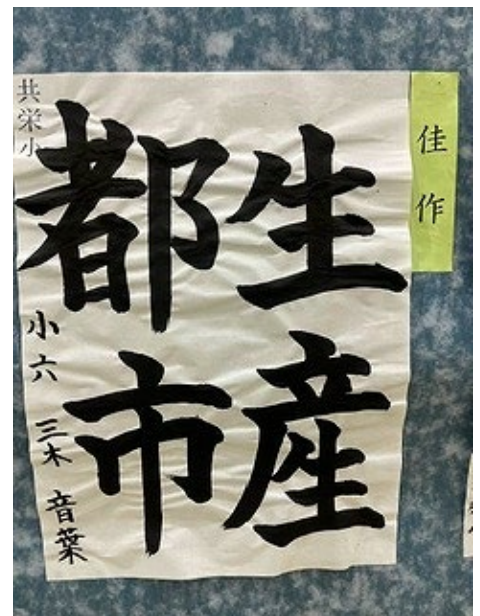 佳作
生産
都市
共栄小
小六 三木 音葉